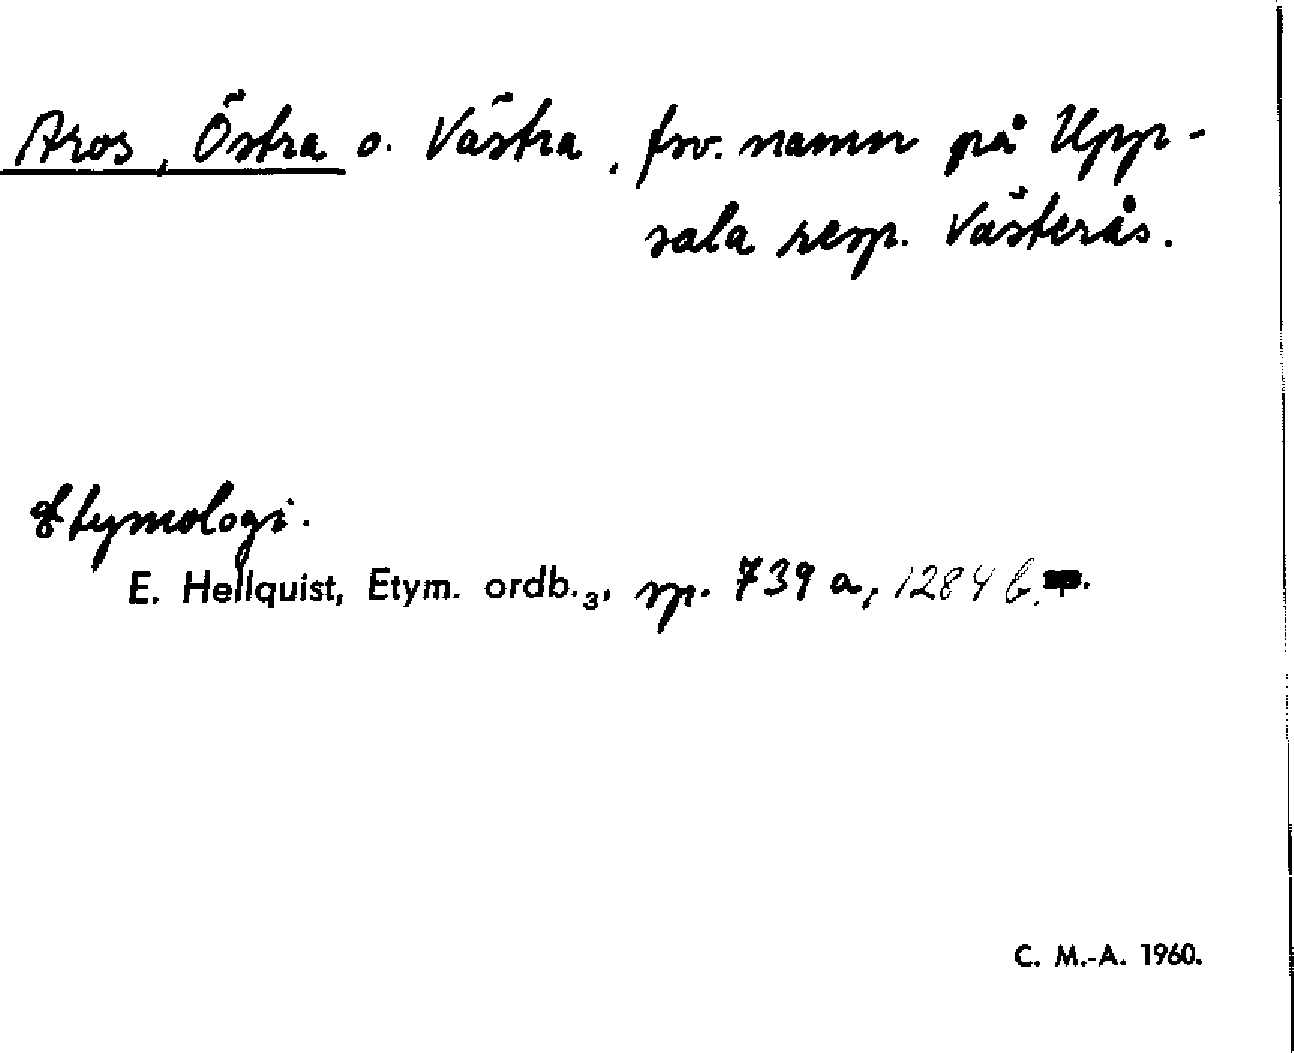 Aros, Östra o. Västra, fsv. namn på Upp-
sala resp. Västerås.
Etymologi.
E. Hellquist, Etym. ordb.₃, sp. 739 a, 1284 b.
C. M.-A. 1960.